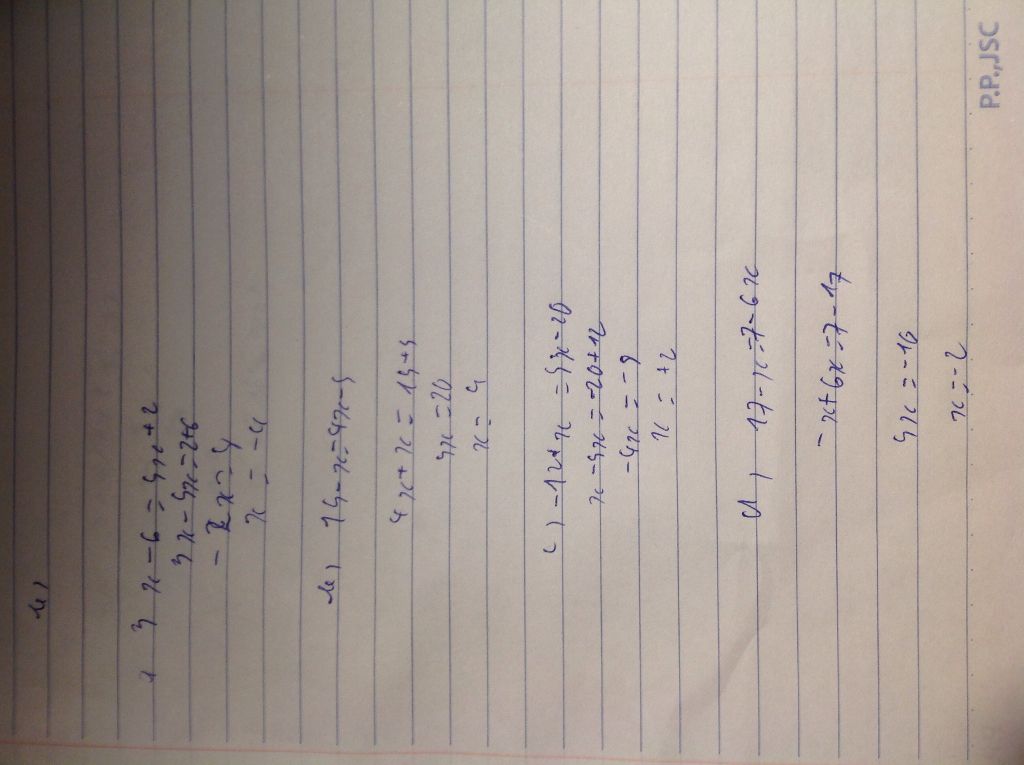 3x-6=5x+2
3x-5x=2+6
-2x=8
x=-4
b, 15-x=4x-5
4x+x=15+5
5x=20
x=4
c) -12+x=5x-20
x-5x=-20+12
-4x=-8
x=+2
d, 17-x=7-6x
-x+6x=7-17
5x=-10
x=-2
P.P.,JSC